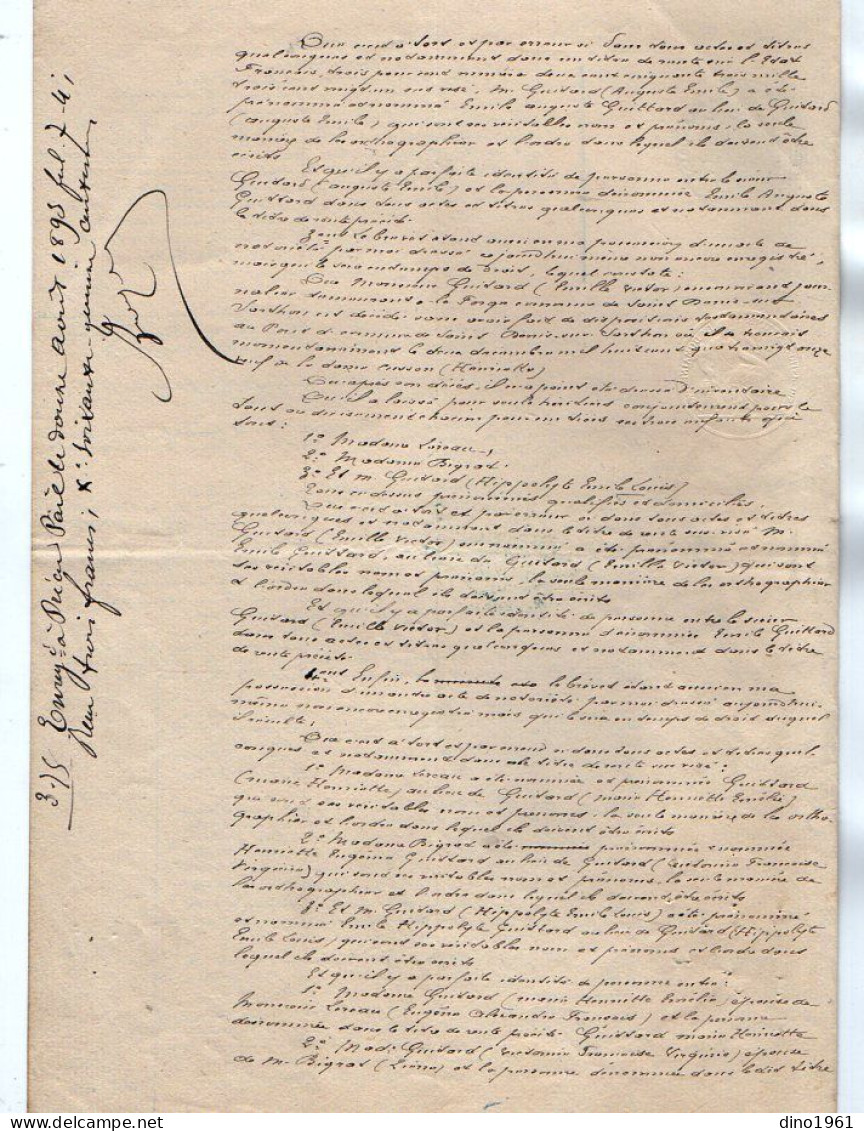 Que c'est à tort et par erreur si dans tous actes et titres
quelconques et notamment dans un titre de rente sur l'Etat
Français, trois pour cent numéro deux cent cinquante trois mille
trois cent vingt un sus visé, M. Guitard (Auguste Emile) a été
prénommé et nommé Emile Auguste Guittard au lieu de Guitard
(Auguste Emile) qui sont ses véritables nom et prénoms, la seule
manière de les orthographier et l'ordre dans lequel ils doivent être
écrits
Et qu'il y a parfaite identité de personne entre le sieur
Guitard (Auguste Emile) et la personne dénommée Emile Auguste
Guittard dans tous actes et titres quelconques et notamment dans
le titre de rente précité.
3ent Le brevet étant aussi en ma possession d'un acte de
notoriété par moi dressé aujourd'hui même non encore enregistré,
mais qui le sera en temps de droit, lequel constate:
Que Monsieur Guitard (Emille Victor) en son vivant jour-
nalier demeurant à la Forge commune de Saint Denis-sur-
Sarthon est décédé sans avoir fait de dispositions testamentaires
au Pont commune de Saint Denis-sur-Sarthon où il se trouvait
momentanément le deux décembre mil huit cent quatre vingt onze
veuf de la dame Cusson (Henriette)
Qu'après son décès, il n'a point été dressé d'inventaire
Qu'il a laissé pour seuls héritiers conjointement pour le
tout ou divisément chacun pour un tiers ses trois enfants qui
sont:
1º Madame Loreau,
2º Madame Bigrat.
3º Et M. Guitard (Hippolyte Emile Louis)
Tous ci-dessus prénommés qualifiés et domiciliés.
Que c'est à tort et par erreur si dans tous actes et titres
quelconques et notamment dans le titre de rente sus-visé M.
Guitard (Emille Victor) susnommé a été prénommé et nommé
Emile Guittard, au lieu de Guitard (Emille Victor) qui sont
ses véritables nom et prénoms, la seule manière de les orthographier
et l'ordre dans lequel ils doivent être écrits
Et qu'il y a parfaite identité de personne entre le sieur
Guitard (Emille Victor) et la personne dénommée Emile Guittard
dans tous actes et titres quelconques et notamment dans le titre
de rente précité.
Enfin, le brevet étant aussi en ma
possession d'un autre acte de notoriété par moi dressé aujourd'hui
même non encore enregistré mais qui le sera en temps de droit duquel
il résulte:
Que c'est à tort et par erreur si dans tous actes et titres quel-
conques et notamment dans le titre de rente sus visé:
1º Madame Loreau a été nommée et prénommée Guittard
(Marie Henriette) au lieu de Guitard (Marie Henriette Emélie)
qui sont ses véritables nom et prénoms, la seule manière de les ortho-
graphier et l'ordre dans lequel ils doivent être écrits
2º Madame Bigrat a été prénommée et nommée
Henriette Eugénie Guittard au lieu de Guitard (Victorine Françoise
Virginie) qui sont ses véritables nom et prénoms, la seule manière de
les orthographier et l'ordre dans lequel ils doivent être écrits
3º Et M. Guitard (Hippolyte Emile Louis) a été prénommé
et nommé Emile Hippolyte Guittard au lieu de Guitard (Hippolyte
Emile Louis) qui sont ses véritables nom et prénoms et l'ordre dans
lequel ils doivent être écrits
Et qu'il y a parfaite identité de personne entre:
1º Madame Guitard (Marie Henriette Emélie) épouse de
Monsieur Loreau (Eugène Alexandre François) et la personne
dénommée dans le titre de rente précité Guittard Marie Henriette
2º Made Guitard (Victorine Françoise Virginie) épouse
de M. Bigrat (Léon) et la personne dénommée dans le dit titre
3.75 Enregé à Pré en Pail le douze Août 1893 fol. 7
Reçu trois francs,
dino1961